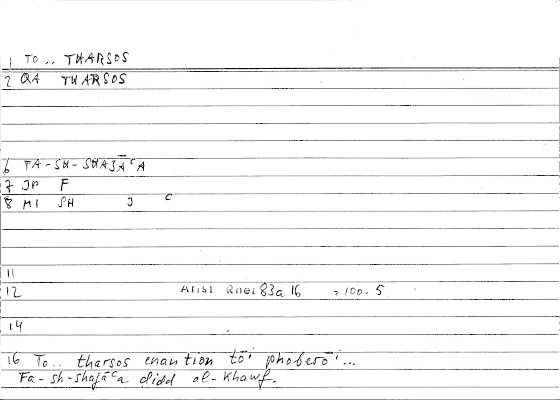 1 TO .. THARSOS
2 QA THARSOS
6 FA-SH-SHAJĀᶜA
7 JP F
8 MI SH J ᶜ
11
12 Arist Rhet 83a 16 = 100.5
14
16 To.. tharsos enantion tōⁱ phoberōⁱ...
Fa-sh-shajāᶜa didd al-Khawf.